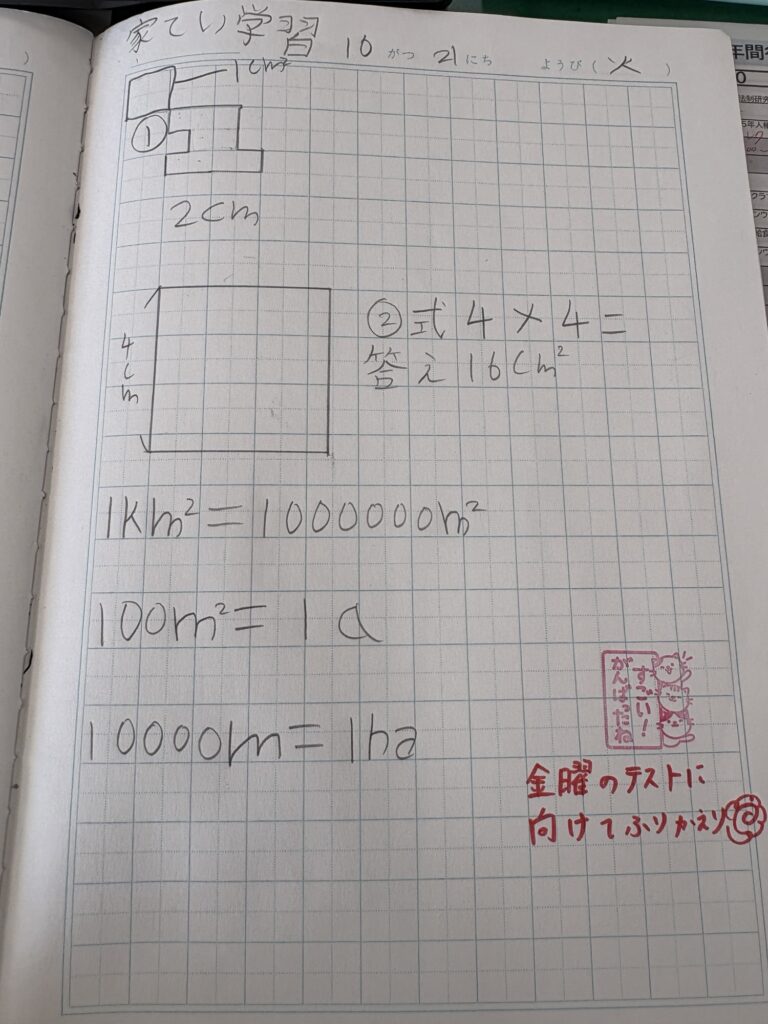 家てい学習 10がつ21にち ようび(火)
1cm²
①
2cm
4cm
②式 4×4=
答え 16cm²
1km²=1000000m²
100m²=1a
10000m=1ha
すごい!
がんばったね
金曜のテストに
向けてふりかえり
年間